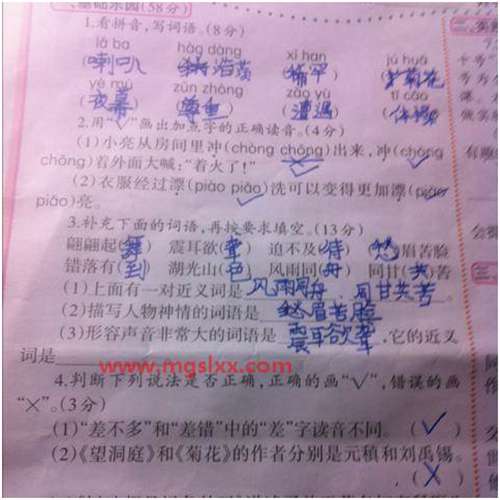 基础乐园(58分)
1.看拼音,写词语。(8分)
lǎ ba hào dàng xī han jú huā
(喇叭) (浩荡) (稀罕) (菊花)
yè mù zūn zhòng zāo yù tǐ cāo
(夜幕) (尊重) (遭遇) (体操)
2.用“√”画出加点字的正确读音。(4分)
(1)小亮从房间里冲(chòng chōng)出来,冲(chòng
chōng)着外面大喊:“着火了!”
(2)衣服经过漂(piào piǎo)洗可以变得更加漂(piào
piǎo)亮。
3.补充下面的词语,再按要求填空。(13分)
翩翩起(舞) 震耳欲(聋) 迫不及(待) (愁)眉苦脸
错落有(到) 湖光山(色) 风雨同(舟) 同甘(共)苦
(1)上面有一对近义词是 风雨同舟、同甘共苦
(2)描写人物神情的词语是 愁眉苦脸
(3)形容声音非常大的词语是 震耳欲聋 ,它的近义
词是
www.mgslxx.com
4.判断下列说法是否正确,正确的画“√”,错误的画
“×”。(3分)
(1)“差不多”和“差错”中的“差”字读音不同。 (√)
(2)《望洞庭》和《菊花》的作者分别是元稹和刘禹锡。
(X)